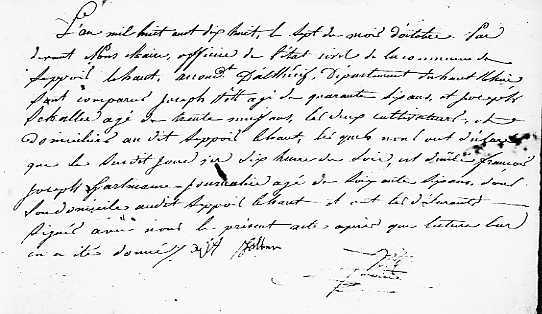 L'an mil huit cent dix huit, le sept du mois d'octobre Par
devant Nous Maire, officier de l'état civil de la commune de
Seppois le haut, arrond.t D'altkirch, Département du haut Rhin
Sont comparus joseph Stott agé de quarante six ans, et joseph
agé de trente neuf ans, les deux cultivateurs, et
Domiciliés au dit Seppois le haut, les quels nous ont déclaré
que le Susdit jour six heures du Soir, est décédé françois
joseph Hartmann journalier agé de Soixante six ans, dont
Son domicile audit Seppois le haut et ont les déclarants
Signés avec nous le present acte après que lecture leur
en a étés donnés